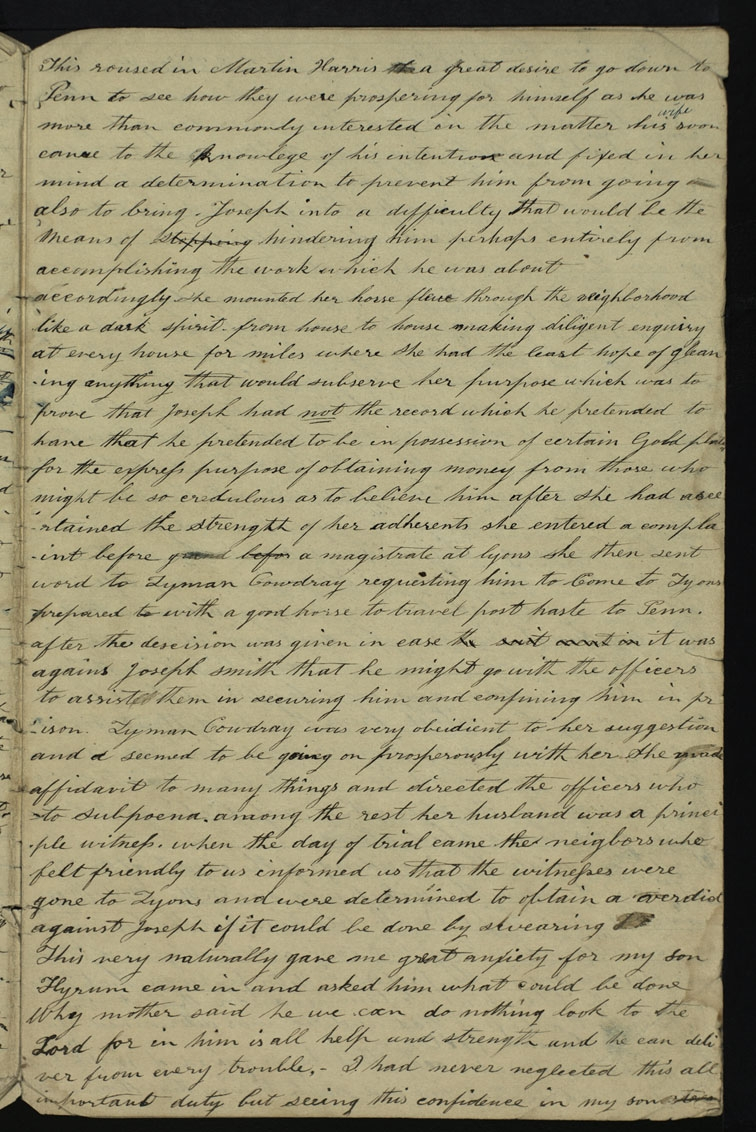 This roused in Martin Harris a great desire to go down to
Penn to see how they were prospering for himself as he was
more than commonly interested in the matter his wife soon
came to the knowlege of his intention and fixed in her
mind a determination to prevent him from going
also to bring Joseph into a difficulty that would be the
means of stopping hindering him perhaps entirely from
accomplishing the work which he was about
accordingly she mounted her horse flew through the neighborhood
like a dark spirit from house to house making diligent enquiry
at every house for miles where she had the least hope of glean
-ing anything that would subserve her purpose which was to
prove that Joseph had not the record which he pretended to
have that he pretended to be in possession of certain Gold plates
for the express purpose of obtaining money from those who
might be so credulous as to believe him after she had asce
-rtained the strenght of her adherents she entered a compla
-int before befor a magistrate at lyons she then sent
word to Lyman Cowdray requesting him to Come to Lyons
prepared to with a good horse to travel post haste to Penn.
after the descision was given in case it was
agains Joseph smith that he might go with the officers
to assist them in securing him and confining him in pr
-ison. Lyman Cowdray was very obeidient to her suggestion
and d seemed to be going on prosperously with her she made
affidavit to many things and directed the officers who
to subpoena. among the rest her husband was a princi
-ple witness. when the day of trial came the neigbors who
felt friendly to us informed us that the witnesses were
gone to Lyons and were determined to obtain a verdid
against Joseph if it could be done by swearing
This very naturally gave me great anxiety for my son
Hyrum came in and asked him what could be done
Why mother said he we can do nothing look to the
Lord for in him is all help and strength and he can deli
ver from every trouble.- I had never neglected this all
important duty but seeing this confidence in my son